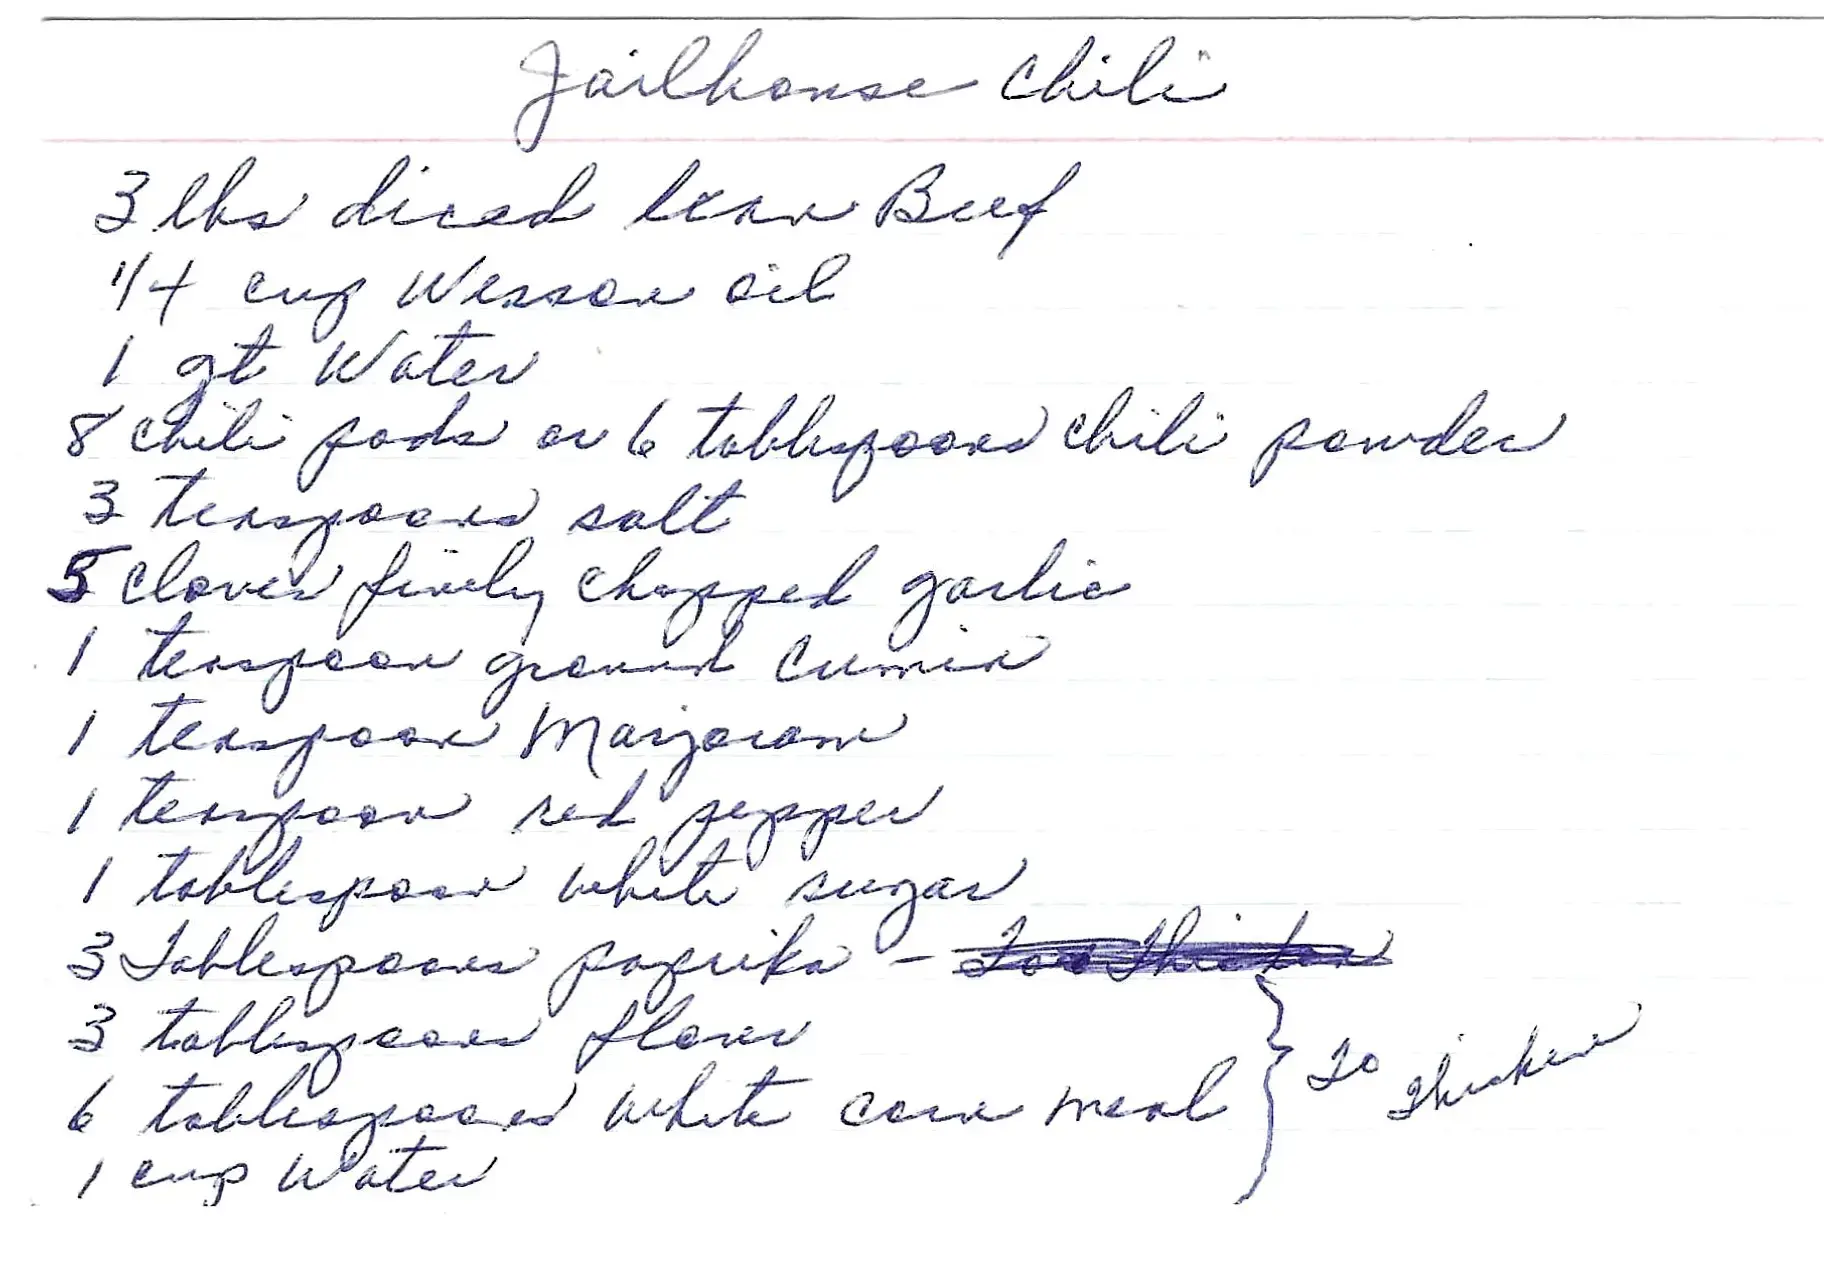 Jailhouse Chili
3 lbs diced lean Beef
1/4 cup Wesson oil
1 qt Water
8 chili pods or 6 tablespoons chili powder
3 teaspoons salt
5 cloves finely chopped garlic
1 teaspoon ground cumin
1 teaspoon Marjoram
1 teaspoon red pepper
1 tablespoon white sugar
3 Tablespoons paprika -
3 tablespoons flour
6 tablespoons white corn meal } To Thicken
1 cup Water